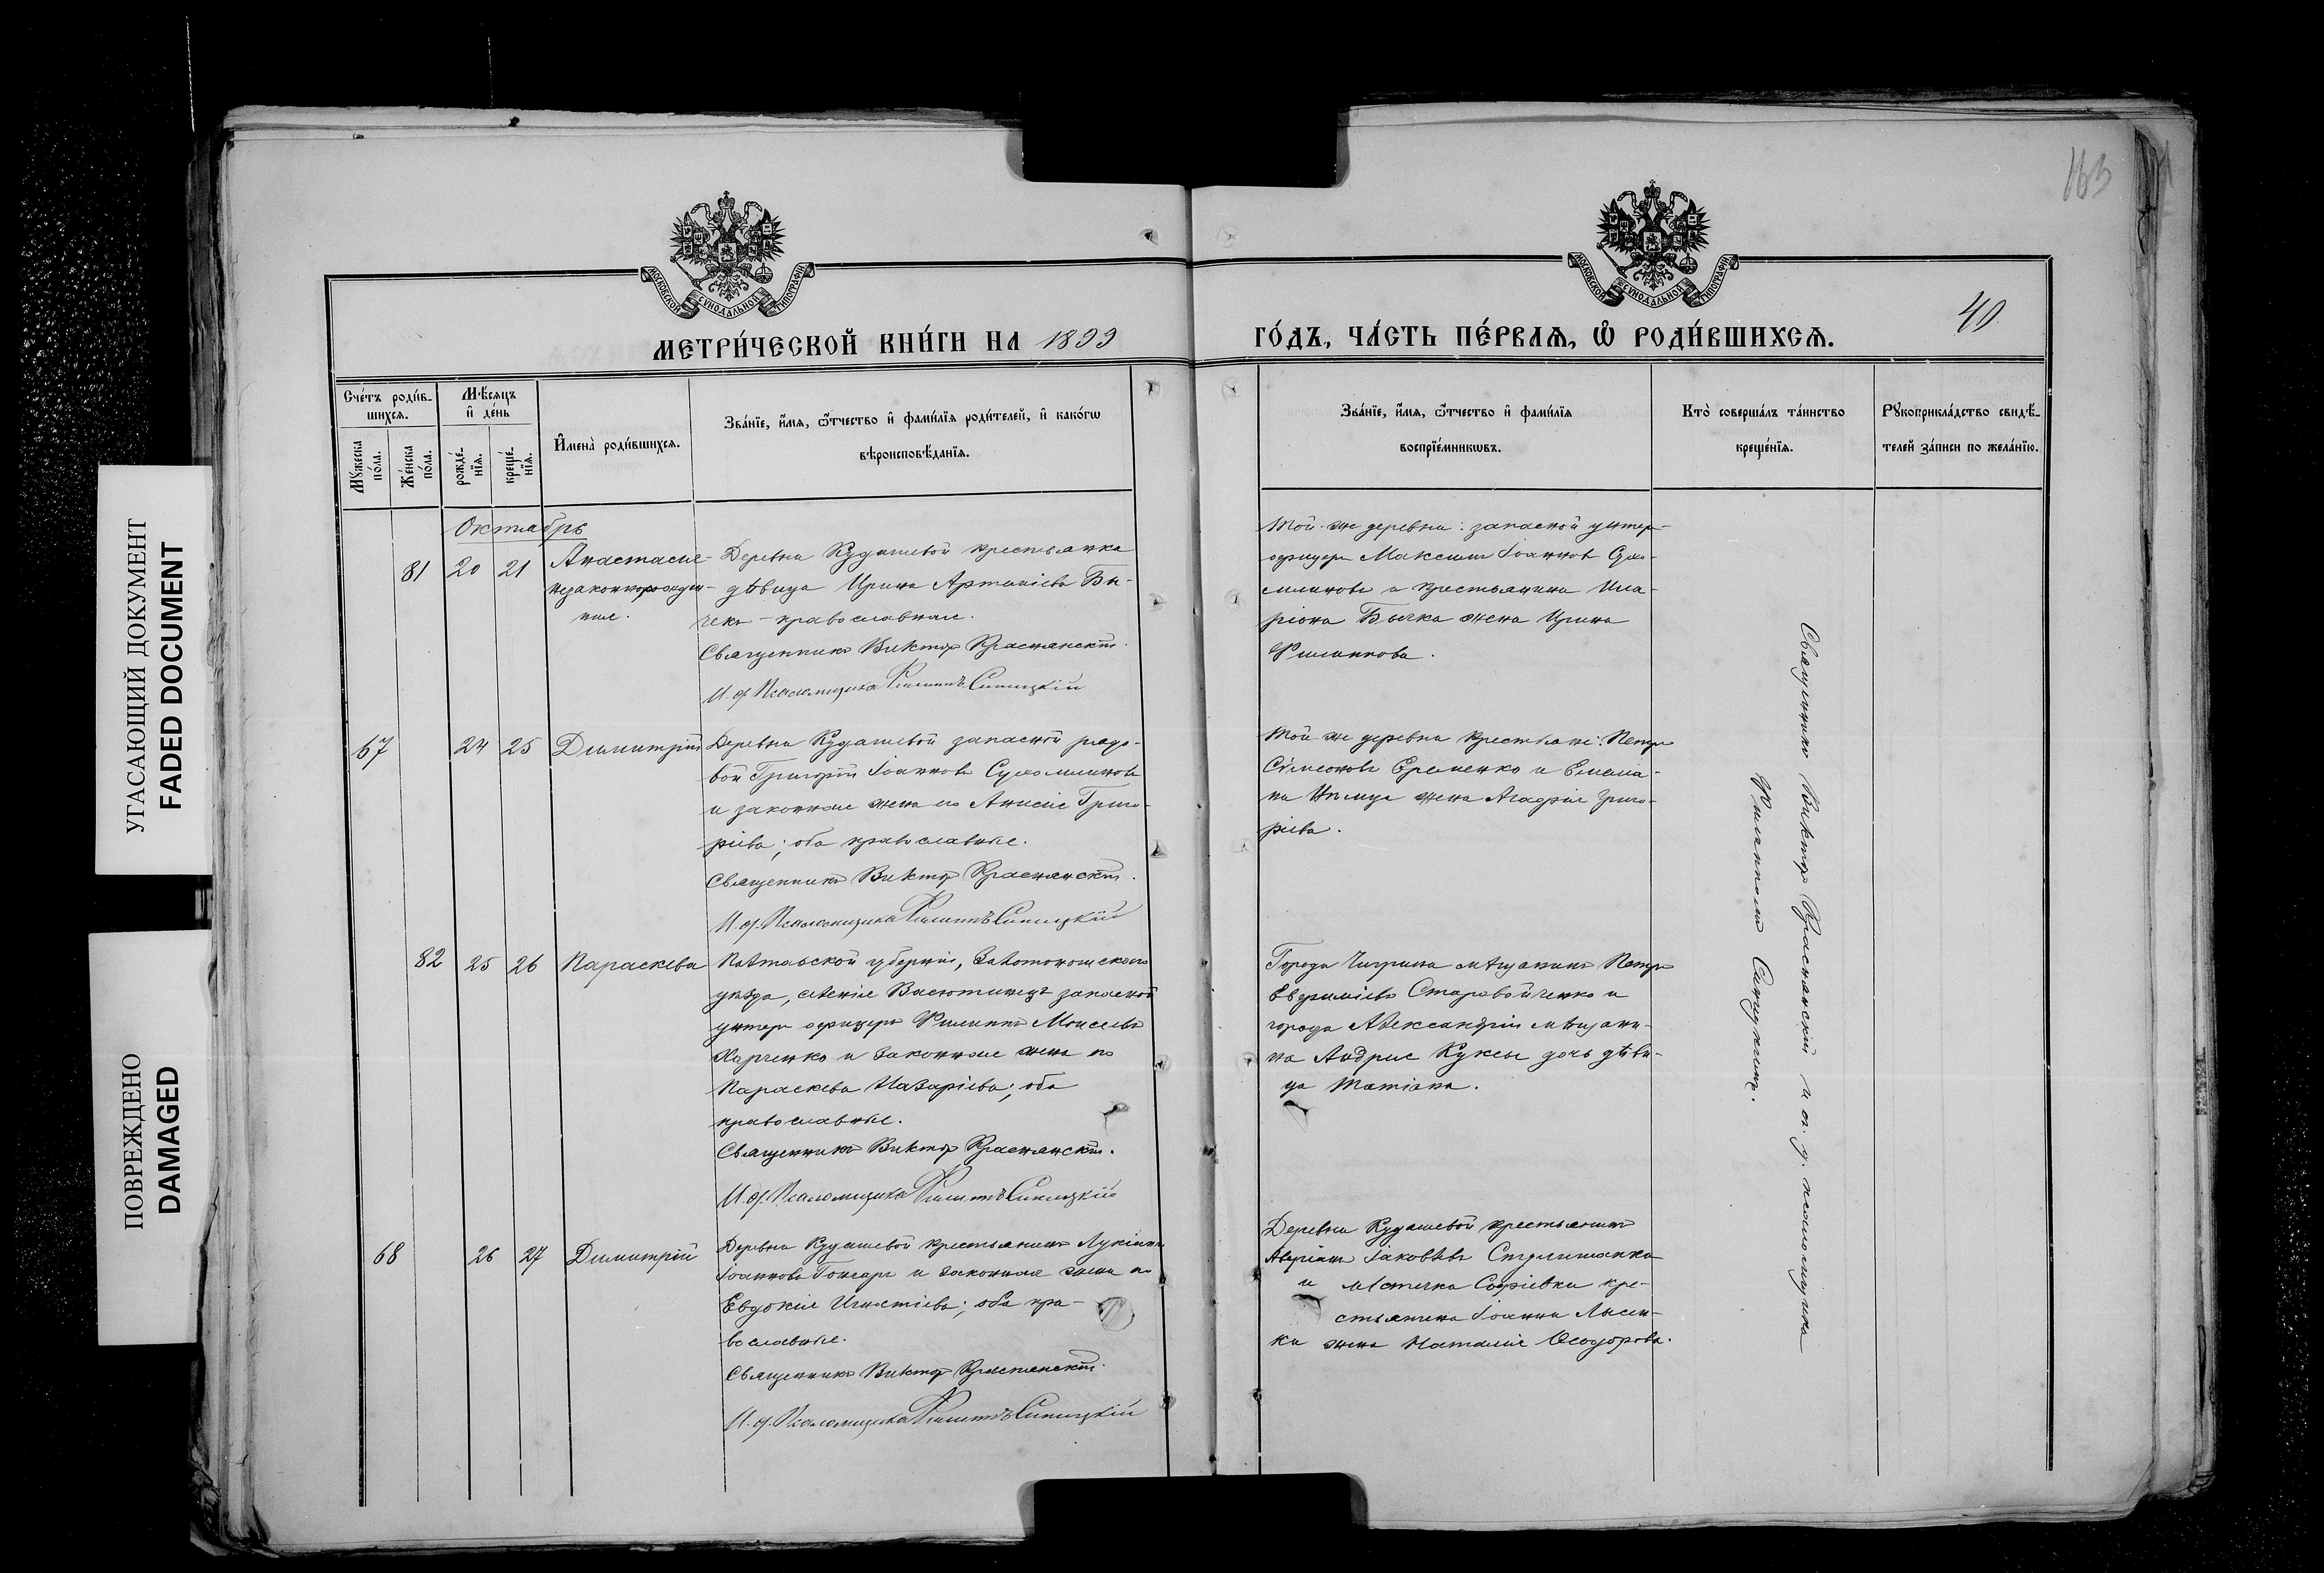 УГАСАЮЩИЙ ДОКУМЕНТ
FADED DOCUMENT
ПОВРЕЖДЕНО
DAMAGED
163
40
МОСКОВСКОЙ СѴНОДАЛЬНОЙ ТИПОГРАФІИ
МОСКОВСКОЙ СѴНОДАЛЬНОЙ ТИПОГРАФІИ
МЕТРИ́ЧЕСКОЙ КНИ́ГИ НА 1899 ГО́ДЪ, ЧА́СТЬ ПЕ́РВАѦ, Ѡ҆ РОДИ́ВШИХСѦ.
Сче́тъ роди́в-
шихсѧ.
Мꙋ́жеска по́ла.
Же́нска по́ла.
Мѣ́сѧцъ
и҆ де́нь
рожде́-
нїѧ.
креще́-
нїѧ.
И҆мена̀ роди́вшихсѧ.
Зва́нїе, и҆́мѧ, ѻ҆́тчество и҆ фами́лїѧ роди́телей, и҆ како́гѡ
вѣроисповѣ́данїѧ.
Зва́нїе, и҆́мѧ, ѻ҆́тчество и҆ фами́лїѧ
воспрїе́мникѡвъ.
Кто̀ соверша́лъ та́инство
креще́нїѧ.
Рꙋкоприкла́дство свидѣ́-
телей за́писи по жела́нїю.
Октябрь
81 20 21
Анастасія
незаконнорожден-
ная.
Деревни Кудашевой крестьянка
дѣвица Ирина Артеміева Бы-
чекъ – православная.
Священникъ Викторъ Краснянскій.
И. д. Псаломщика Филиппъ Синицкій
Той-же деревни: запасной унтер-
офицеръ Максимъ Іоанновъ Сухо-
млиновъ и крестьянина Ила-
ріона Бычка жена Ирина
Филиппова.
67 24 25 Димитрій
Деревни Кудашевой запасной рядо-
вой Григорій Іоанновъ Сухомлиновъ
и законная жена его Анисія Григо-
ріева; оба православные.
Священникъ Викторъ Краснянскій.
И. д. Псаломщика Филиппъ Синицкій
Той-же деревни крестьяне: Петръ
Сѵмеоновъ Еременко и Емелиа-
на Нѣмца жена Агафія Григо-
ріева.
82 25 26 Параскева
Полтавской губерніи, Золотоношскаго
уѣзда, селенія Васютинецъ запасной
унтеръ офицеръ Филиппъ Моисеевъ
Харченко и законная жена его
Параскева Назаріева; оба
православные.
Священникъ Викторъ Краснянскій.
И. д. Псаломщика Филиппъ Синицкій
Города Чигрина мѣщанинъ Петръ
Евфиміевъ Старовойченко и
города Александріи мѣщани-
на Андрея Куксы дочь дѣви-
ца Татіана.
68 26 27 Димитрій
Деревни Кудашевой крестьянинъ Лукіанъ
Іоанновъ Гончаръ и законная жена его
Евдокія Игнатіева; оба пра-
вославные.
Священникъ Викторъ Краснянскій.
И. д. Псаломщика Филиппъ Синицкій
Деревни Кудашевой крестьянинъ
Іаковлевъ
и мѣстечка Софіевки кре-
стьянина Іоанна Лысен-
ка жена Наталія Ѳеодорова.
Священникъ Викторъ Краснянскій и и. д. псаломщика
Филиппомъ Синицкимъ.